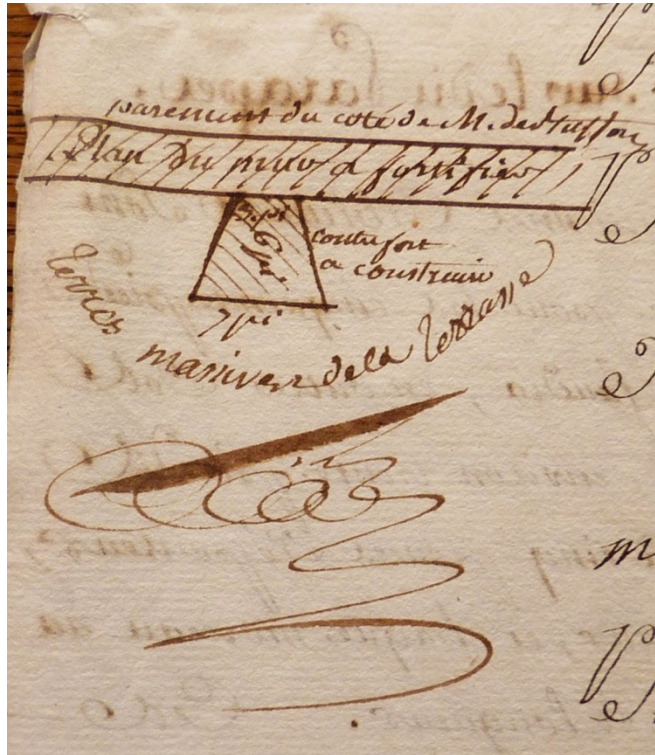 parement du coté de M. de
Plan du mur a fortifier
3 pi
6 pi
contrefort
a construire
7 pi
terres massives de la terrasse